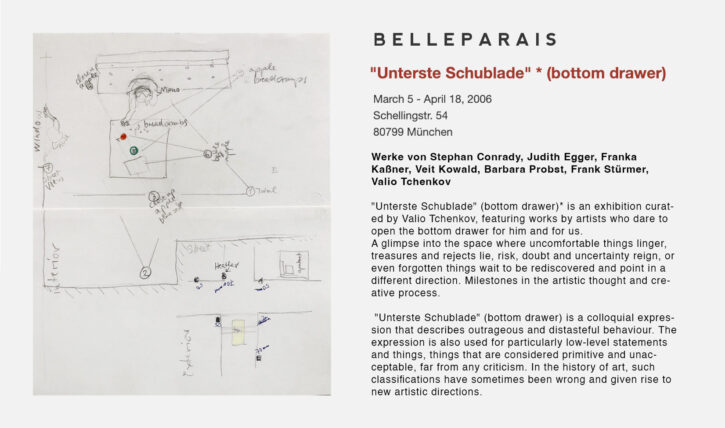 apple
breadcrumbs
Mona
breadcrumbs
WINDOW
Total
interior
2
Street
Exterior
BELLEPARAIS
"Unterste Schublade" * (bottom drawer)
March 5 - April 18, 2006
Schellingstr. 54
80799 München
Werke von Stephan Conrady, Judith Egger, Franka
Kaßner, Veit Kowald, Barbara Probst, Frank Stürmer,
Valio Tchenkov
"Unterste Schublade" (bottom drawer)* is an exhibition curat-
ed by Valio Tchenkov, featuring works by artists who dare to
open the bottom drawer for him and for us.
A glimpse into the space where uncomfortable things linger,
treasures and rejects lie, risk, doubt and uncertainty reign, or
even forgotten things wait to be rediscovered and point in a
different direction. Milestones in the artistic thought and cre-
ative process.
"Unterste Schublade" (bottom drawer) is a colloquial expres-
sion that describes outrageous and distasteful behaviour. The
expression is also used for particularly low-level statements
and things, things that are considered primitive and unac-
ceptable, far from any criticism. In the history of art, such
classifications have sometimes been wrong and given rise to
new artistic directions.